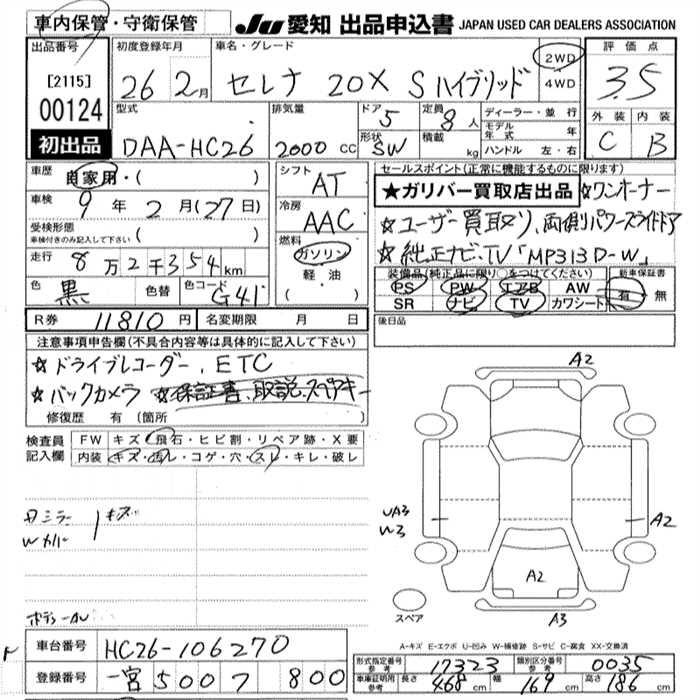 車内保管・守衛保管
JU 愛知 出品申込書 JAPAN USED CAR DEALERS ASSOCIATION
出品番号
[2115]
00124
初出品
初度登録年月
26 2月
車名・グレード
セレナ 20X Sハイブリッド
2WD
4WD
評価点
3.5
外装 内装
C B
型式
DAA-HC26
排気量
2000 CC
ドア 5
形状 SW
定員 8人
積載 kg
ディーラー・並行
モデル年式 年
ハンドル 左・右
車歴
自家用・( )
車検 9年 2月 (27日)
受検形態
車検付きのみ記入して下さい ( )
走行 8万2千354km
色 黒 色替 色コード G41
シフト AT
冷房 AAC
燃料
ガソリン
軽・油
( )
セールスポイント(正常に機能するものに限ります)
★ガリバー買取店出品 ☆ワンオーナー
☆ユーザー買取り、両側パワースライドドア
☆純正ナビ、TV「MP313D-W」
装備品(純正品に限り○をつけてください)
PS PW エアB AW
SR ナビ TV カワシート
新車保証書
有・無
R券 11810円 名変期限 月 日
後日品
注意事項申告欄(不具合内容等は具体的に記入して下さい)
☆ドライブレコーダー、ETC
☆バックカメラ ☆保証書、取説、スペアキー
修復歴 有 (箇所 )
検査員記入欄
FW キズ・飛石・ヒビ割・リペア跡・X要
内装 キズ・汚レ・コゲ・穴・スレ・キレ・破レ
キズ
A2
UA3
W3
A2
A2
A3
スペア
A-キズ E-エクボ U-凹み W-補修跡 S-サビ C-腐食 XX-交換済
車台番号 HC26-106270
登録番号 一宮 500 フ 800
形式指定番号 参考 17323 類別区分番号 参考 0035
車庫証明用 参考 長さ 468cm 幅 169cm 高さ 186cm